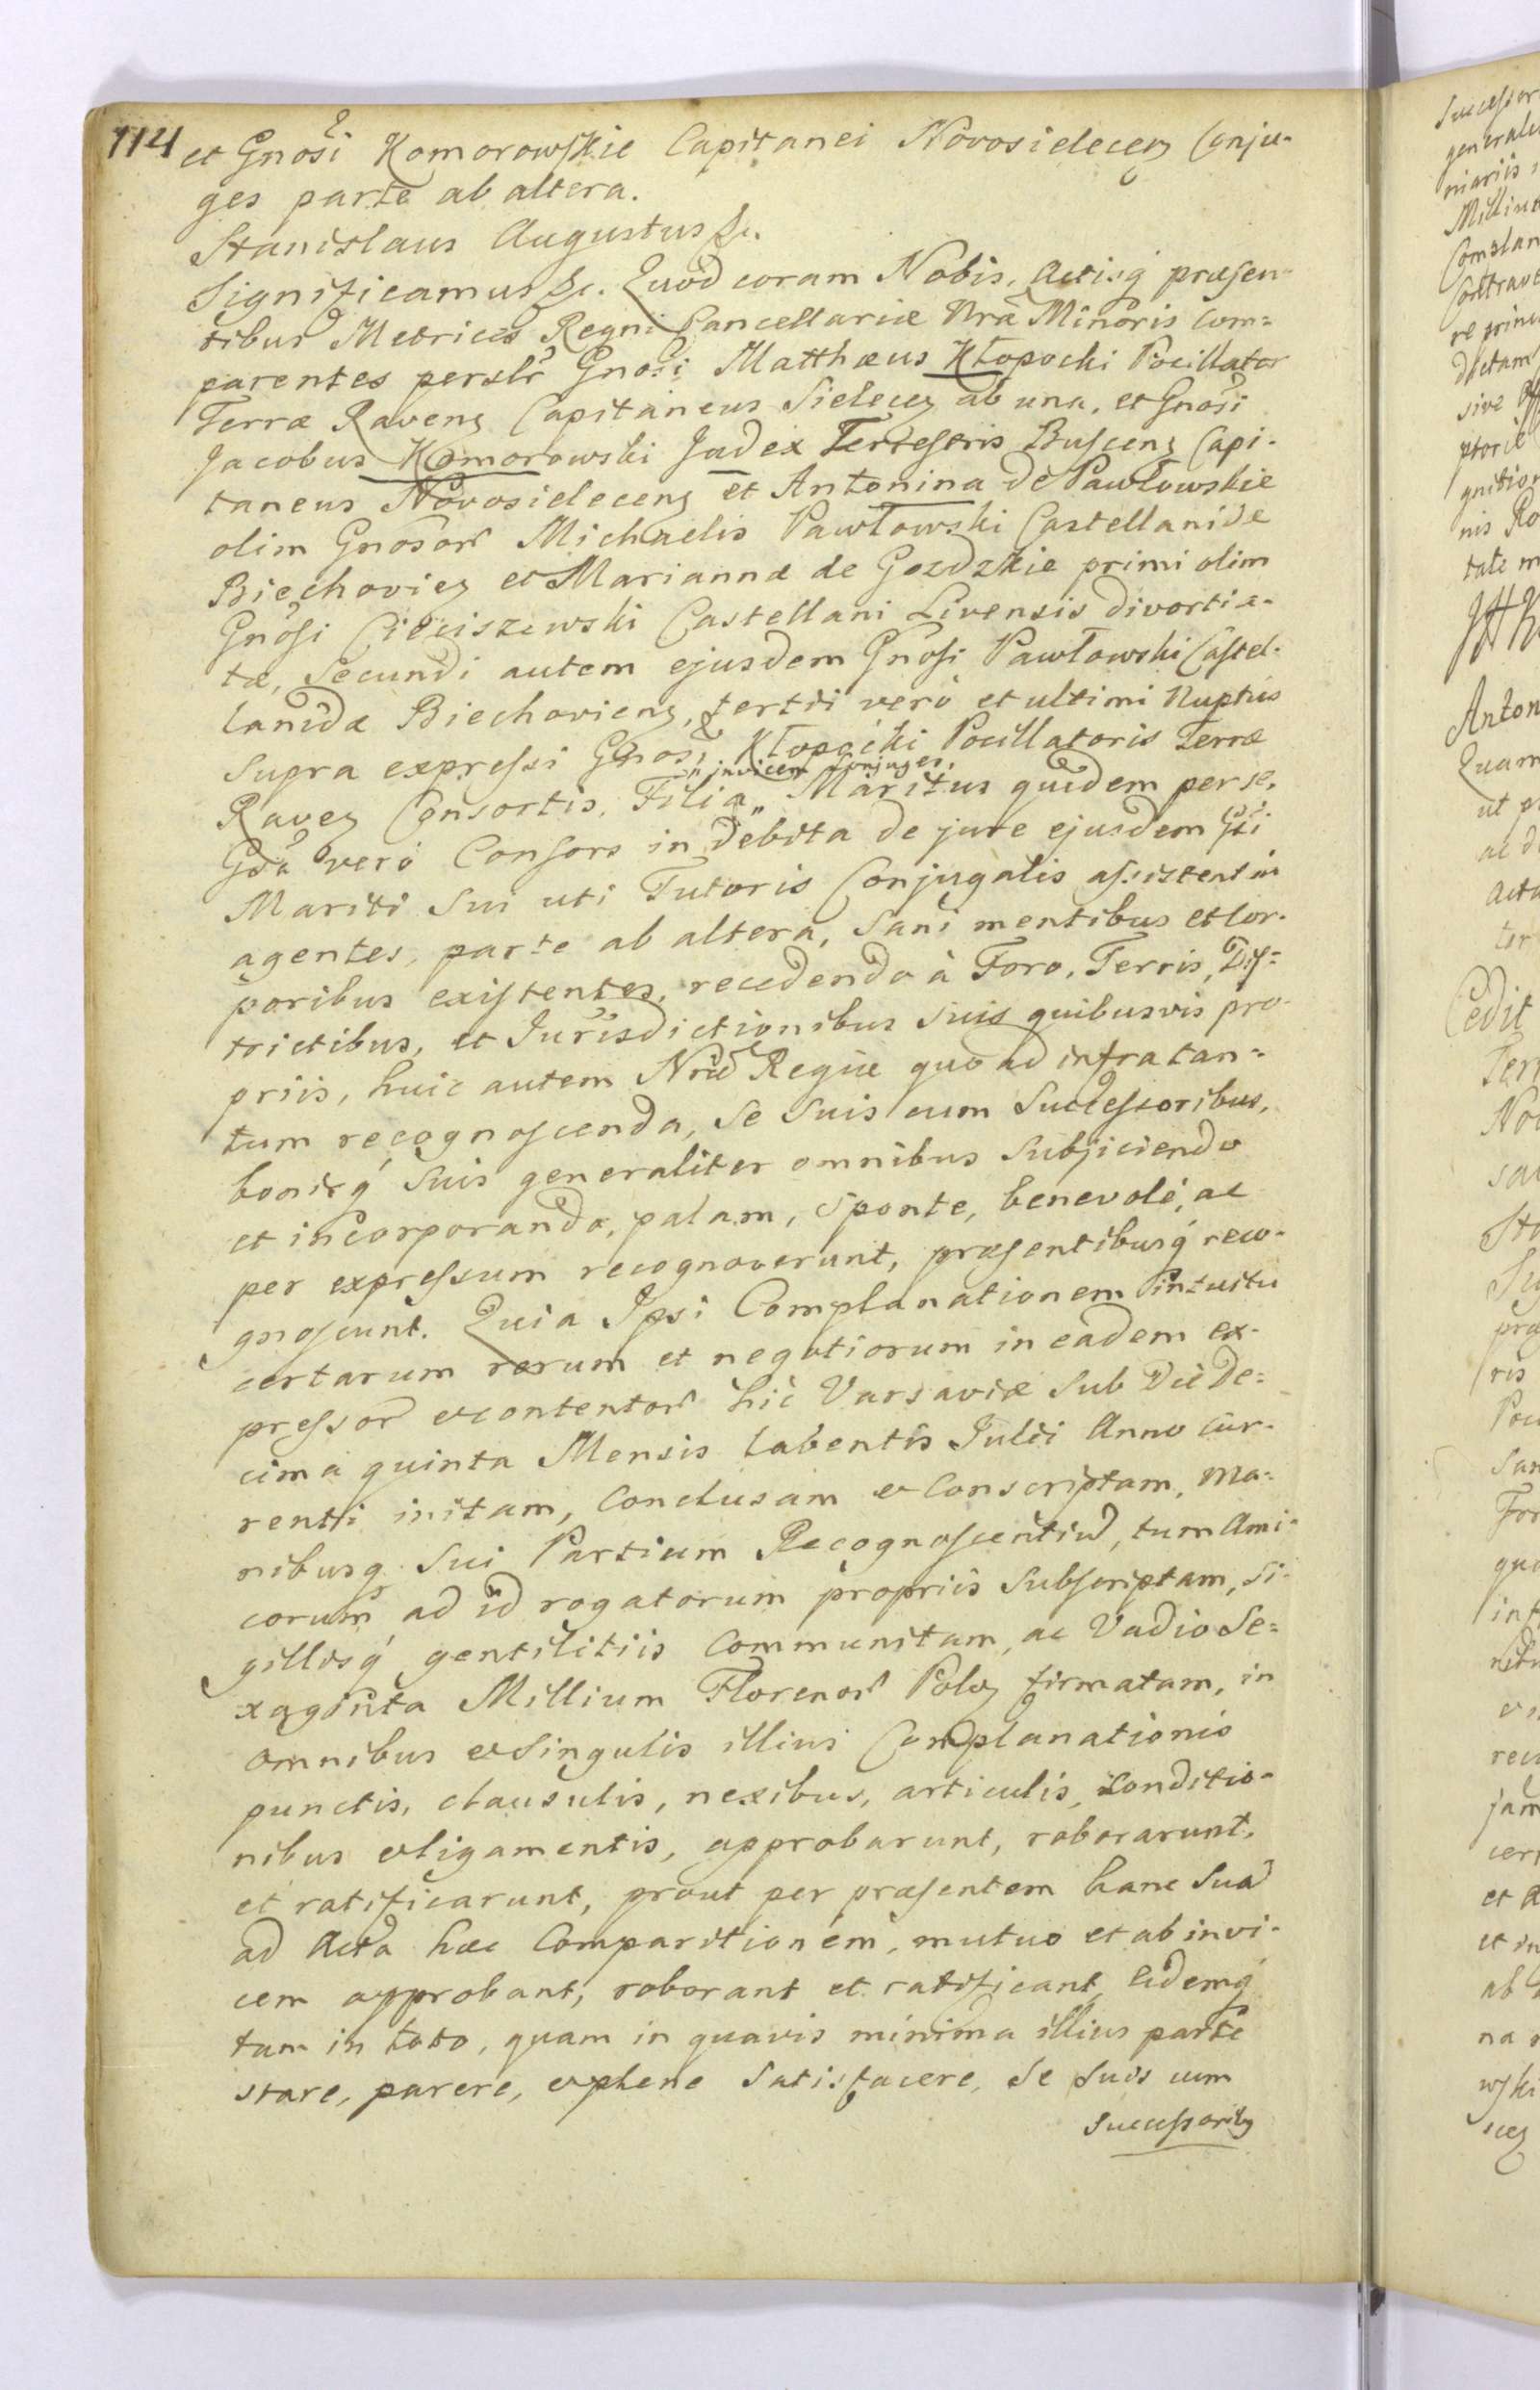 114
et Gnosi Komorowskie Capitanei Novosielecen Conju-
ges parte ab altera.
Stanislaus Augustus &c.
Significamus &c. Quod coram Nobis, Actisq præsen-
tibus Metrices Regni Cancellariæ Nrã Minoris Com-
parentes perslr Gnosi Matthæus Kłopocki Pocillator
Terræ Ravens Capitaneus Sielecen ab una, et Gnosi
Jacobus Komorowski Judex Terrestris Buscens Capi-
taneus Novosielecens et Antonina de Pawłowskie
olim Gnosor Michaelis Pawłowski Castellanide
Biechovien et Mariannæ de Gozdzkie primi olim
Gnosi Cieciszewski Castellani Livensis divortia-
tæ, Secundi autem ejusdem Gnosi Pawłowski Castel-
lanidæ Biechoviens, tertii verò et ultimi Nuptus
supra expressi Gnosi Kłopocki Pocillatoris Terræ
Raven Consortis, Filia, " invicem Conjuges, Maritus quidem per se,
Gsa verò Consors in debita de jure ejusdem Gsi
Mariti sui uti Tutoris Conjugalis assistentia
agentes, parte ab altera, Sani mentibus et Cor-
poribus existentes, recedendo à Foro, Terris, Dis-
trictibus, et Jurisdictionibus suis quibusvis pro-
priis, huic autem Nræ Regiæ quo ad infra tan-
tum recognoscenda, Se suis cum Successoribus,
bonisq suis generaliter omnibus Subjiciendo
et incorporando, palam, sponte, benevolè, ac
per expressum recognoverunt, præsentibusq reco-
gnoscunt. Quia Ipsi Complanationem intuitu
certarum rerum et negotiorum in eadem ex-
pressor et contentor hic Varsaviæ Sub Die De-
cima quinta Mensis labentis Julii Anno Cur-
renti initam, Conclusam et Conscriptam, Ma-
nibusq Sui Partium Recognoscentiu, tum Ami-
corum ad id rogatorum propriis Subscriptam, Si-
gillisq gentilitiis Communitam, ac Vadio Se-
xaginta Millium Florenor Polo firmatam, in
Omnibus et Singulis illius Complanationis
punctis, clausulis, nexibus, articulis, Conditio-
nibus et ligamentis, approbarunt, roborarunt,
et ratificarunt, prout per præsentem hanc Sua
ad Acta hæc Comparitionem, mutuo et ab invi-
cem approbant, roborant et ratificant Eidemq
tam in toto, quam in quavis minima illius parte
stare, parere, et plene Satisfacere, Se Suis cum
Successorib